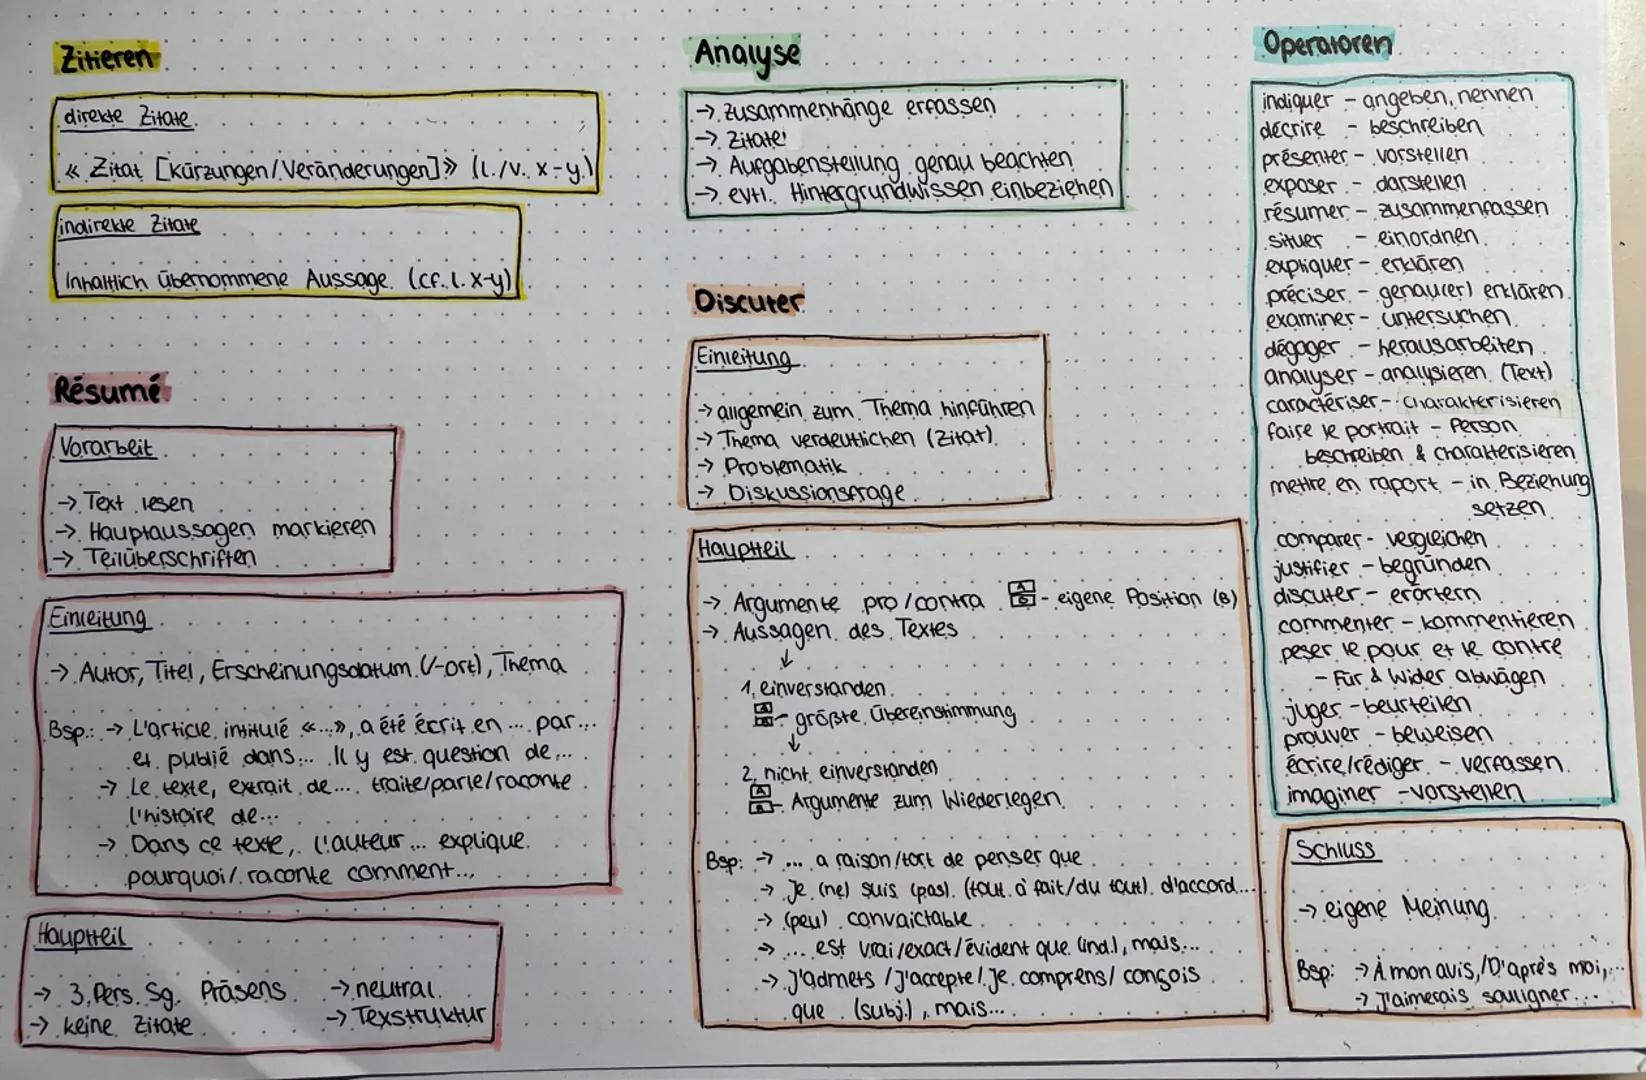 Zitieren
direkte Zitate
« Zitat [Kürzungen/Veränderungen]» (l./v. x-y.)
indirekte Zitate
Inhaltlich übernommene Aussage (cf. l. x-y)
Résumé
Vorarbeit
→ Text lesen
→ Hauptaussagen markieren
→ Teilüberschriften
Einleitung
→ Autor, Titel, Erscheinungsdatum (/-ort), Thema
Bsp.: → L'article intitulé «...», a été écrit en ... par...
et publié dans... Il y est question de...
→ Le texte, extrait de ... traite/parle/raconte
l'histoire de...
→ Dans ce texte, l'auteur ... explique
pourquoi/raconte comment...
Hauptteil
→ 3. Pers. Sg. Präsens → neutral
→ keine Zitate → Texstruktur
Analyse
→ Zusammenhänge erfassen
→ Zitate!
→ Aufgabenstellung genau beachten
→ evtl. Hintergrundwissen einbeziehen
Discuter
Einleitung
→ allgemein zum Thema hinführen
→ Thema verdeutlichen (Zitat)
→ Problematik
→ Diskussionsfrage
Hauptteil
→ Argumente pro/contra A B - eigene Position (B)
→ Aussagen des Textes
↓
1. einverstanden
A B - größte Übereinstimmung
↓
2. nicht einverstanden
A B - Argumente zum Wiederlegen
Bsp: → ... a raison/tort de penser que
→ Je (ne) suis (pas) (tout à fait/du tout) d'accord...
→ (peu) convaictable
→ ... est vrai/exact/évident que (ind.), mais...
→ J'admets /J'accepte/Je comprens/ conçois
que (subj.), mais...
Operatoren
indiquer - angeben, nennen
décrire - beschreiben
présenter - vorstellen
exposer - darstellen
résumer - zusammenfassen
situer - einordnen
expliquer - erklären
préciser - genau(er) erklären
examiner - untersuchen
dégager - herausarbeiten
analyser - analysieren (Text)
caractériser - charakterisieren
faire le portrait - Person
beschreiben & charakterisieren
mettre en raport - in Beziehung
setzen
comparer - vergleichen
justifier - begründen
discuter - erörtern
commenter - kommentieren
peser le pour et le contre
- Für & Wider abwägen
juger - beurteilen
prouver - beweisen
écrire/rédiger - verfassen
imaginer - vorstellen
Schluss
→ eigene Meinung
Bsp: → À mon avis,/D'après moi,...
→ J'aimerais souligner...